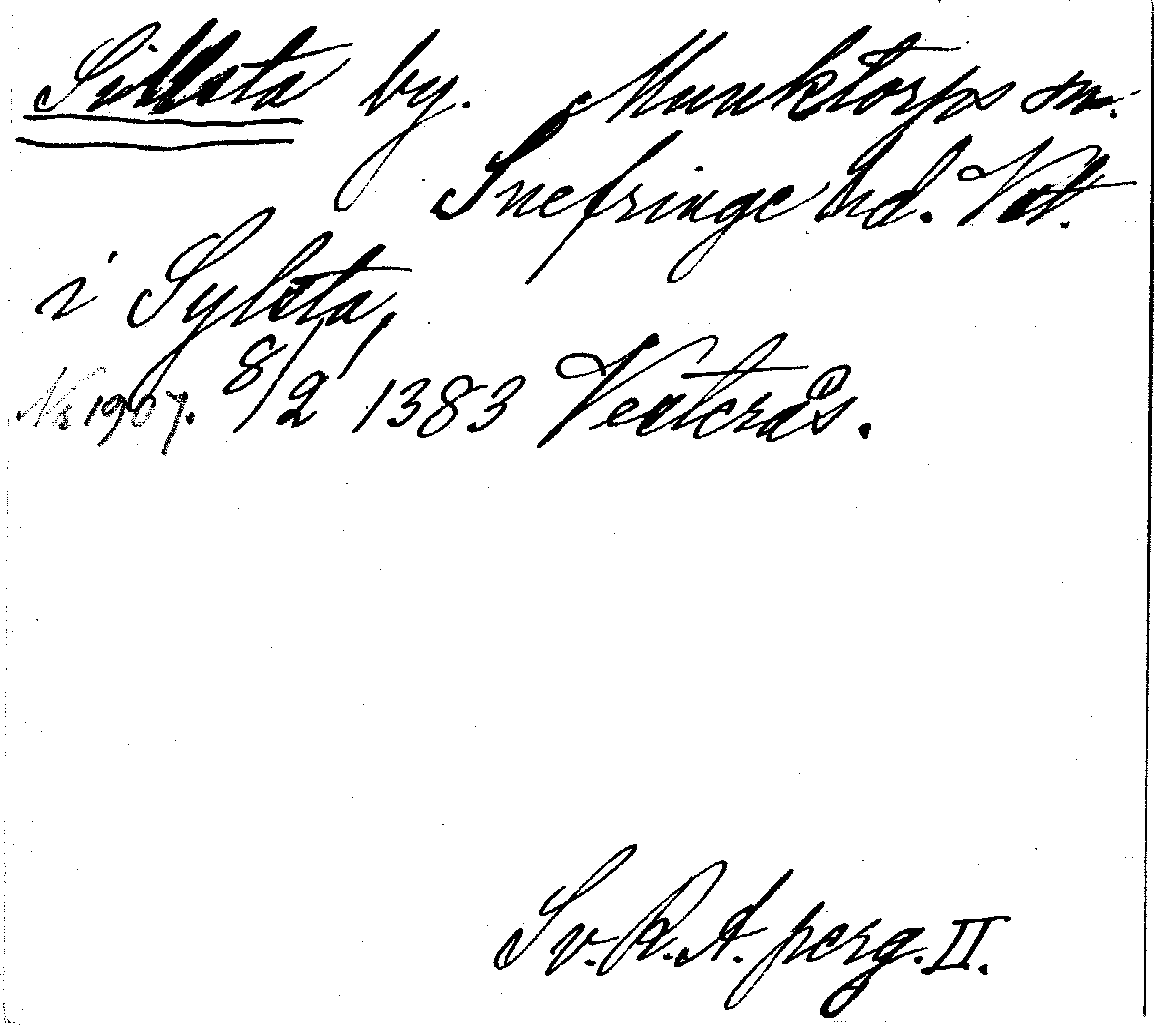 Sillsta by. Munktorps sn.
Snefringe hd. Vstl.
i Sylsta,
No 1907. 8/2 1383 Vesterås.
Sv. R. A. perg. II.